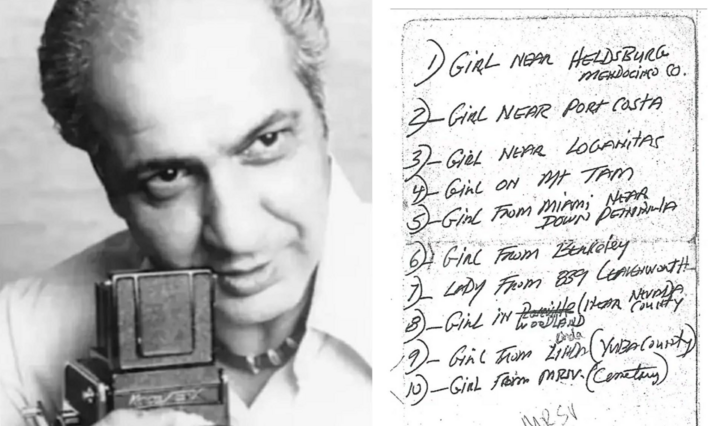 1) GIRL NEAR HELDSBURG
MENDOCINO CO.
2) - GIRL NEAR PORT COSTA
3) - GIRL NEAR LOGANITAS
4) - GIRL ON MT TAM
5) - GIRL FROM MIAMI NEAR
DOWN PENINNULA
6) GIRL FROM BERKELEY
7) - LADY FROM 839 LEAVENWORTH
8) - GIRL IN (NEAR NEVADA
COUNTY
WOODLAND
9) - GIRL FROM LINDA (YUBA COUNTY)
10) - GIRL FROM MRSV. (Cemetery)
MRSV